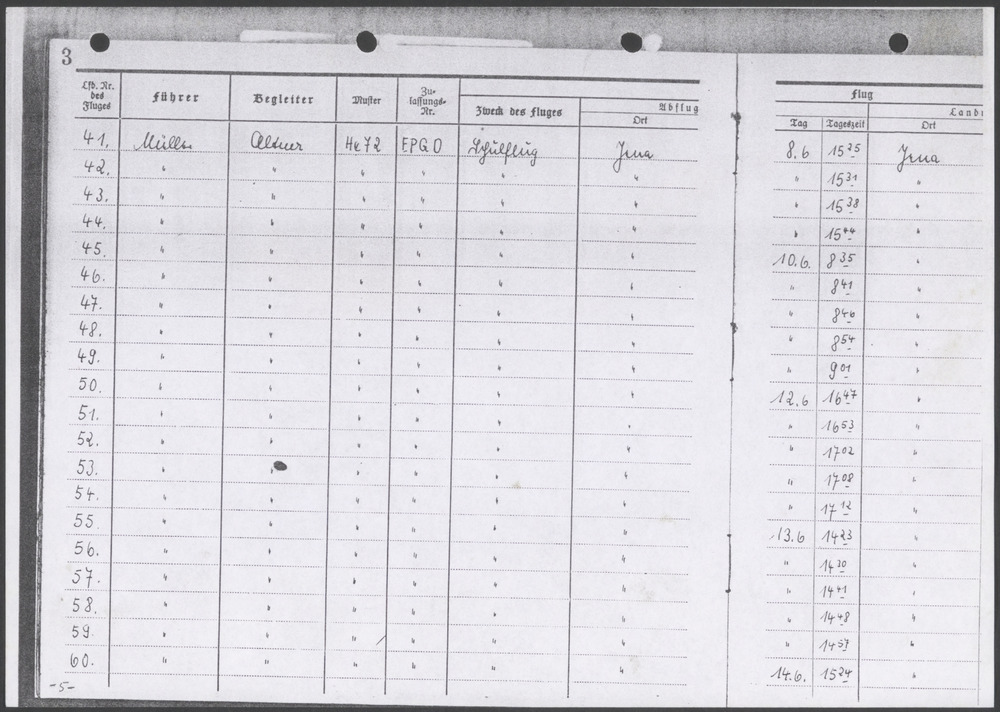 3
Lfd. Nr. des Fluges | Führer | Begleiter | Muster | Zu-lassungs-Nr. | Zweck des Fluges | Abflug Ort | Flug Tag | Tageszeit | Land Ort
41. Müller Altner He 72 EPQO Schulflug Jena 8.6 15 25 Jena
42. " " " " " " " 15 31 "
43. " " " " " " " 15 38 "
44. " " " " " " " 15 44 "
45. " " " " " " 10.6. 8 35 "
46. " " " " " " " 8 41 "
47. " " " " " " " 8 46 "
48. " " " " " " " 8 54 "
49. " " " " " " 9 01 "
50. " " " " " " 12.6 16 47 "
51. " " " " " " " 16 53 "
52. " " " " " " " 17 02 "
53. " " " " " " " 17 08 "
54. " " " " " " " 17 12 "
55. " " " " " " 13.6 14 23 "
56. " " " " " " " 14 30 "
57. " " " " " " " 14 41 "
58. " " " " " " " 14 48 "
59. " " " " " " " 14 57 "
60. " " " " " " 14.6. 15 24 "
-5-